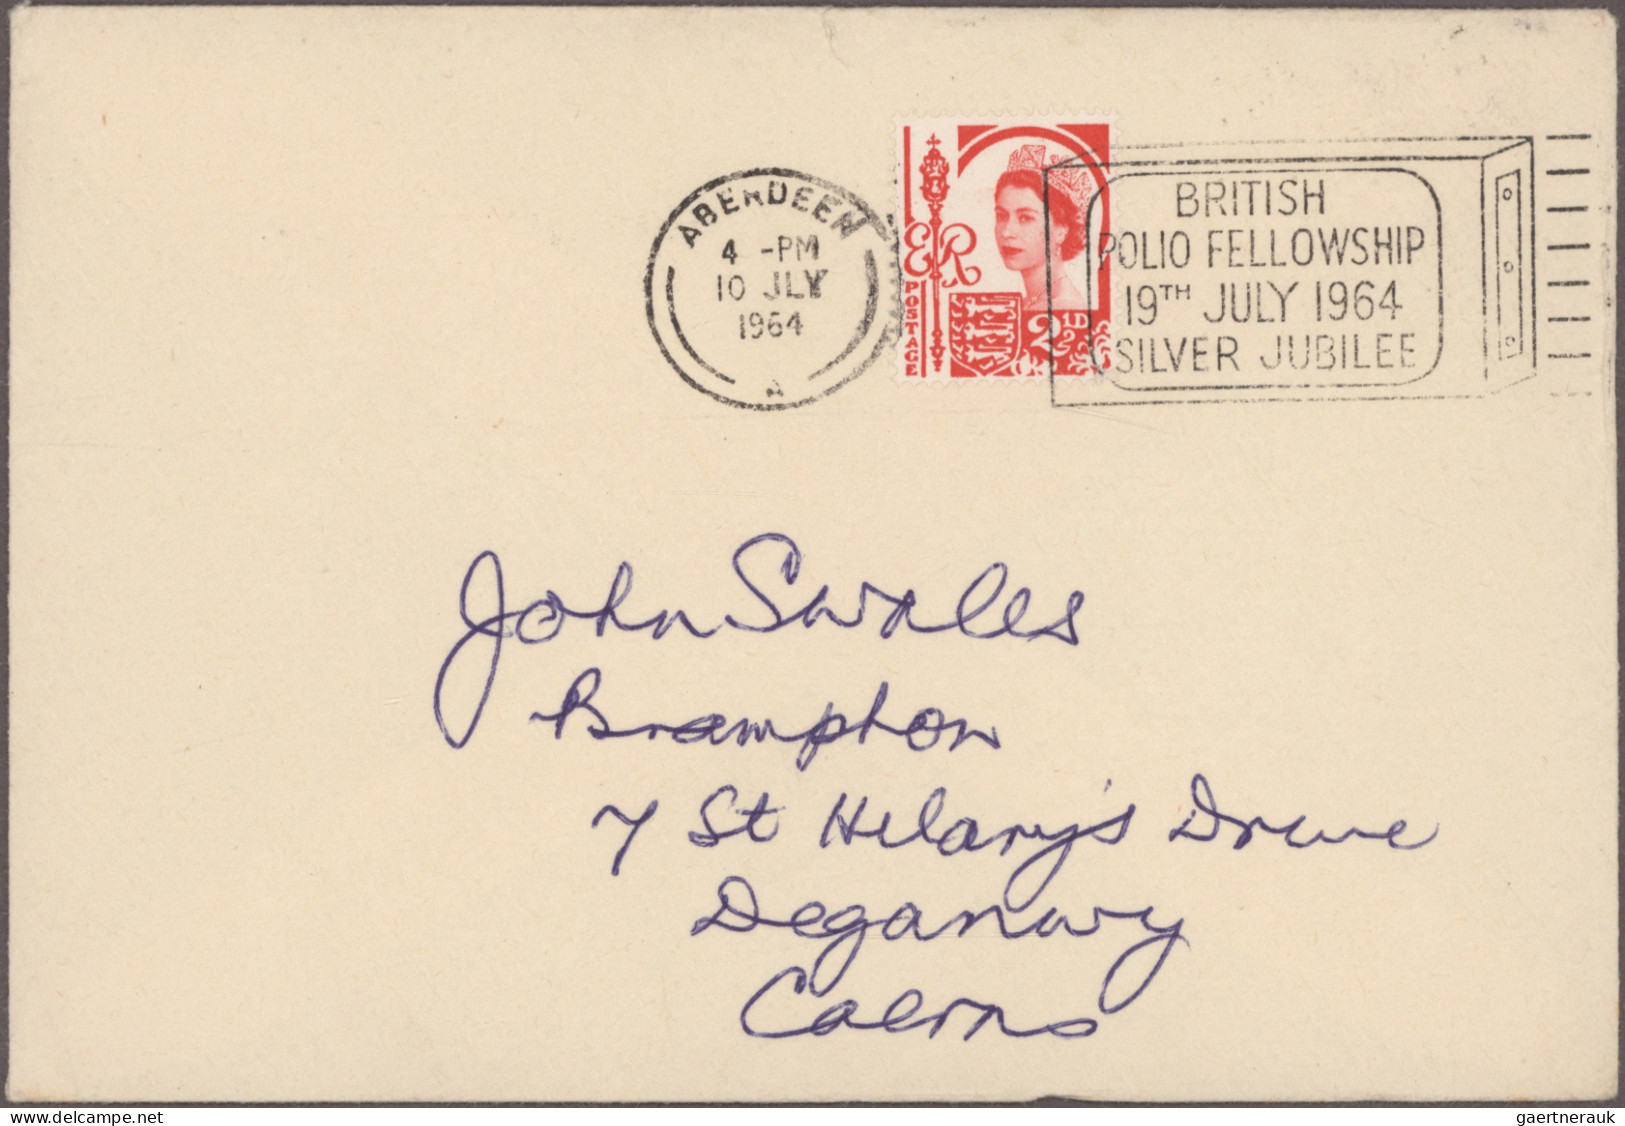 ABERDEEN
4 -PM
10 JLY
1964
A
ER
POSTAGE
2½D
BRITISH
POLIO FELLOWSHIP
19TH JULY 1964
SILVER JUBILEE
John Swales
Brampton
7 St Hilary's Drive
Deganwy
Caerns
the-bidder.delcampe.net
gaertnerauk